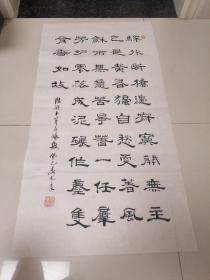 驛外斷橋邊寂寞開無主
已是黃昏獨自愁更著風
和雨無意苦爭春一任羣
芳妒零落成泥碾作塵隻
有香如故
陸游卜算子詠梅 癸巳